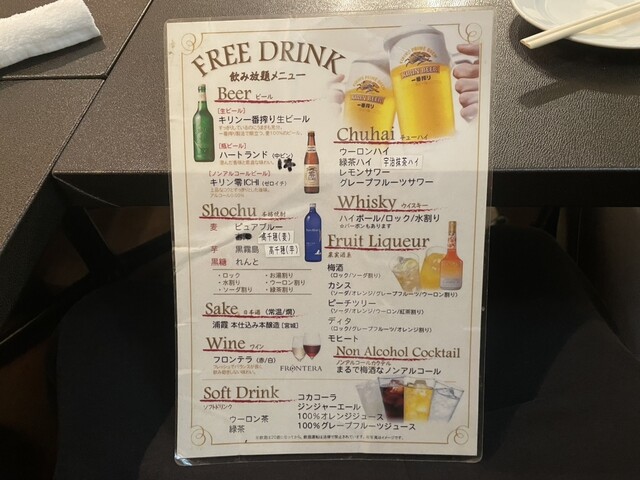 FREE DRINK
飲み放題メニュー
Beer ビール
[生ビール]
キリン一番搾り生ビール
[瓶ビール]
ハートランド (中ビン)
[ノンアルコールビール]
キリン零ICHI (ゼロイチ)
Shochu 本格焼酎
麦 ピュアブルー
高千穂(麦)
芋 黒霧島 高千穂(芋)
黒糖 れんと
・ロック ・お湯割り
・水割り ・ウーロン割り
・ソーダ割り ・緑茶割り
Sake 日本酒 (常温/燗)
浦霞 本仕込み本醸造 [宮城]
Wine ワイン
フロンテラ (赤/白)
FRONTERA
Chuhai チューハイ
ウーロンハイ
緑茶ハイ 宇治抹茶ハイ
レモンサワー
グレープフルーツサワー
Whisky ウイスキー
ハイボール/ロック/水割り
※バーボンもあります
Fruit Liqueur
果実酒系
梅酒
(ロック/ソーダ割り)
カシス
(ソーダ/オレンジ/グレープフルーツ/ウーロン割り)
ピーチツリー
(ソーダ/オレンジ/ウーロン/紅茶割り)
ディタ
(ロック/グレープフルーツ/オレンジ割り)
モヒート
Non Alcohol Cocktail
ノンアルコールカクテル
まるで梅酒なノンアルコール
Soft Drink
ソフトドリンク
ウーロン茶
緑茶
コカコーラ
ジンジャーエール
100%オレンジジュース
100%グレープフルーツジュース